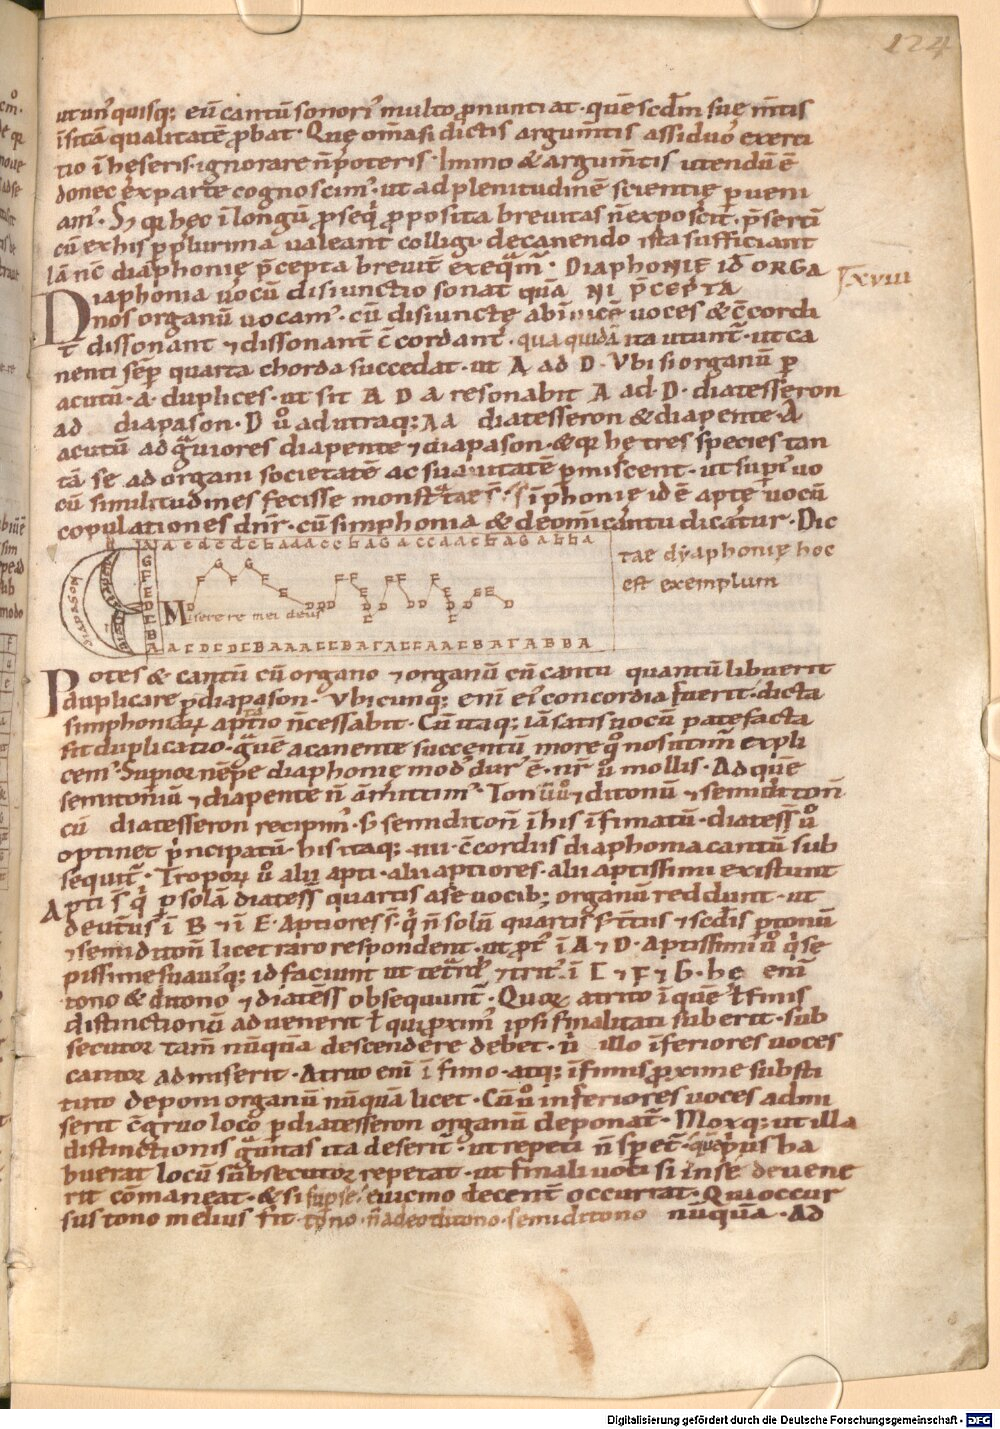 124
ut un' quisq; eũ cantũ sonori' multo pnuntiat · quẽ scdm suę m̃tis
ĩsitã qualitatẽ pbat · Quę om̃a si dictis argum̃tis assiduo exerci
tio ĩheseris · ignorare ñ poteris · Immo & argum̃tis utendũ ẽ
donec ex parte cognoscim' · ut ad plenitudinẽ scientię pueni
am' · S; qr hęc ĩ longũ pseq' pposita brevitas ñ exposcit · p̃serti
cũ ex his p plurima valeant colligi · de canendo ista sufficiant
Iã nc̃ diaphonię p̃cepta brevit̃ exeq̃m̃ · DIAPHONIE id ORGA
Diaphonia vocũ disiunctio sonat quã NI P̃CEPTA xviii
nos organũ vocam' · cũ disiunctę abinvicẽ voces & c̃cordi
t̃ dissonant ⁊ dissonant̃ c̃cordant · qua quidã ita utunt̃ · ut ca
nenti sẽp quarta chorda succedat · ut A ad D · Vbi si organũ p
acutũ · a · duplices · ut sit A D a resonabit A ad D · diatesseron
ad diapason · D ů ad utraq; A a diatesseron & diapente · A
acutũ ad g̃viores diapente ⁊ diapason · & qr hę tres species tan
tã se ad organi societatẽ ac suavitatẽ pmiscent · ut sup' vo
cũ similitudines fecisse monst̃tae s̃ · sĩphonię id ẽ aptę vocũ
copulationes dnr̃ · cũ simphonia & de om̃i cantu dicatur · Dic
tae dyaphonię hoc
est exemplum
DIAPASON
Miserere mei deus
Potes & cantũ cũ organo ⁊ organũ cũ cantu quantũ libuerit
duplicare p diapason · Vbicunq; enĩ ei' concordia fuerit · dicta
simphoniarũ aptio ñ cessabit · Cũ itaq; iã satis vocũ patefacta
sit duplicatio · g̃vẽ a canente succentũ more qo nos utim̃ expli
cem' · Supior nẽpe diaphonię mod' dur' ẽ · nr̃ ů mollis · Ad quẽ
semitoniũ ⁊ diapente ñ am̃ittim' · Tonũ ů ⁊ ditonũ ⁊ semiditoñ
cũ diatesseron recipim' · S; semiditoñ ĩ his ĩfimatũ · diatess̃ ů
optinet p̃ncipatũ · his itaq; · iiii · c̃cordiis diaphonia cantũ sub
sequit̃ · Troporũ ů alii apti · alii aptiores · alii aptissimi existunt
Apti s̃ q' p solã diatess̃ quartis a se vocib; organũ reddunt · ut
deut̃us ĩ B ⁊ ĩ E · Aptiores s̃ · q' ñ solũ quartis s; t̃tiis ⁊ scdis p tonũ
⁊ semiditoñ licet raro respondent · ut pt' ĩ A ⁊ D · Aptissimi ů q' sę
pissime suaviusq; id faciunt ut tet̃rd' ⁊ trit' ĩ C ⁊ F ⁊ G · hę enĩ
tono & ditono ⁊ diatẽss̃ obsequunt̃ · Quorũ a trito ĩ quẽ l̃ finis
distinctionũ advenerit l̃ qui pxim' ipsi finalitati suberit · sub
secutor tam̃ nũquã descendere debet · ñ illo ĩferiores voces
cantor admiserit · A trito enĩ ĩ fimo · atq; ĩ finis pxime substi
tuto deponi organũ nũquã licet · Cũ ů inferiores voces admi
serit c̃gruo loco p diatesseron organũ deponat̃ · Moxq; ut illa
distinctionis g̃vitas ita deserit̃ · ut repeti ñ sp̃et̃ · quẽ prius ha
buerat locũ subsecutor repetat · ut finali voci si in se devene
rit cõmaneat · & si sup se · e vicino decent̃ occurrat · Qui occur
sus tono melius fit · tono · ñ adeo ditono · semiditono nũquã · Ad
Digitalisierung gefördert durch die Deutsche Forschungsgemeinschaft · DFG